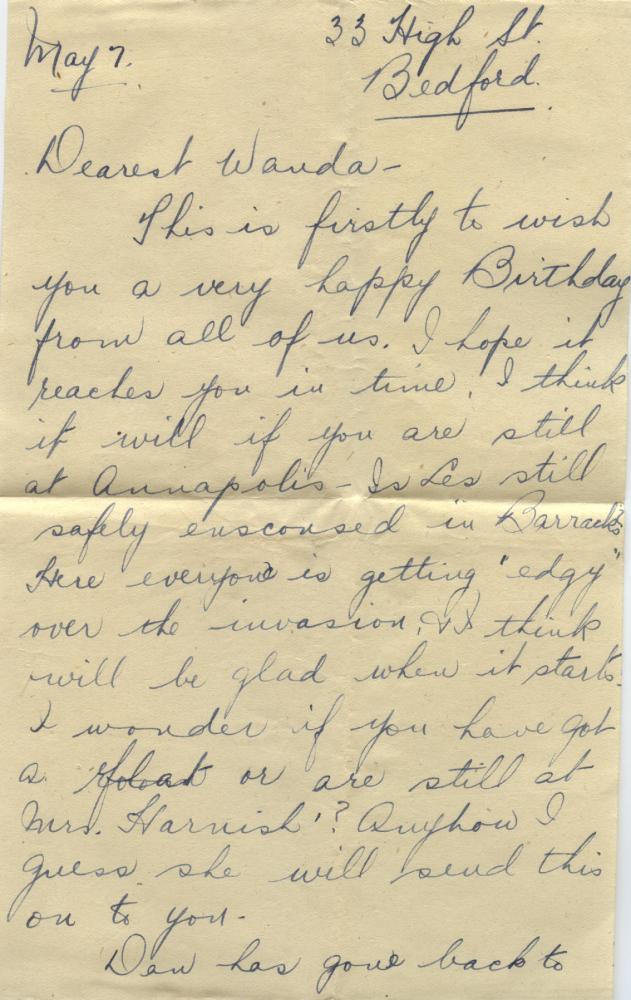 33 High St.
May 7. Bedford.
Dearest Wanda -
This is firstly to wish
you a very happy Birthday
from all of us. I hope it
reaches you in time. I think
it will if you are still
at Annapolis - Is Les still
safely ensconsed in Barracks?
Here everyone is getting "edgy"
over the invasion, & I think
will be glad when it starts.
I wonder if you have got
a or are still at
Mrs. Harnish'? Anyhow I
guess she will send this
on to you -
has gone back to